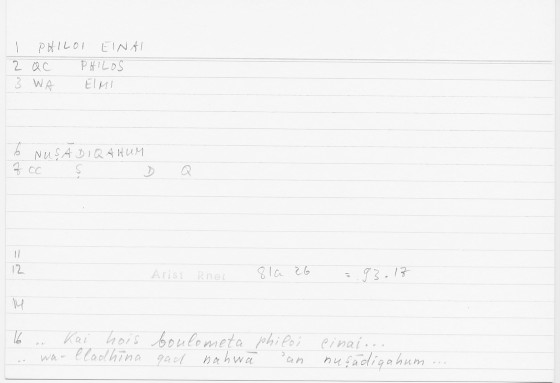 1 PHILOI EINAI
2 QC PHILOS
3 WA EIMI
6 NUṢĀDIQAHUM
7 CC Ṣ D Q
11
12 81a 26 = 93.17
M
16 .. Kai hois boulometa philoi einai...
.. wa-lladhīna qad nahwā ʾan nuṣādiqahum ...